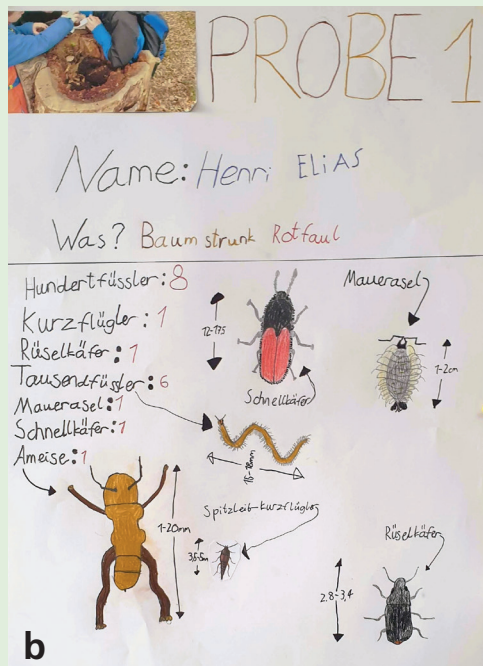 PROBE 1
Name: Henri ELiAS
Was? Baumstrunk Rotfaul
Hundertfüssler: 8
Kurzflügler: 1
Rüselkäfer: 1
Tausendfüssler: 6
Mauerasel: 1
Schnellkäfer: 1
Ameise: 1
12-175
Schnellkäfer
Mauerasel
1-2cm
1-20mm
Spitzleib-Kurzflügler
Rüselkäfer
2.8-3,4
b